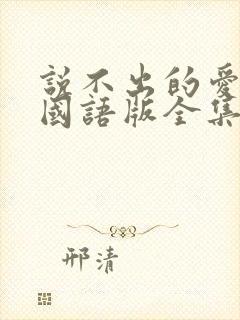 說不出的愛
國語版全集
邢清